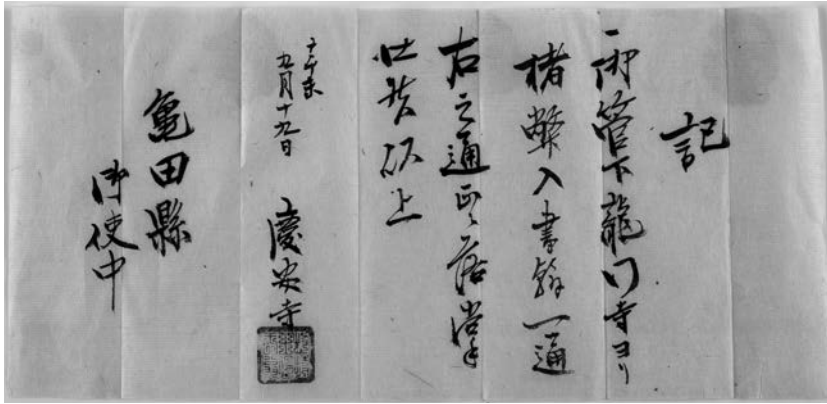 記
一御管下龍門寺ヨリ
楮幣入書翰一通
右之通正ニ落掌
仕候以上
辛未
九月十九日
慶安寺
亀田縣
御使中